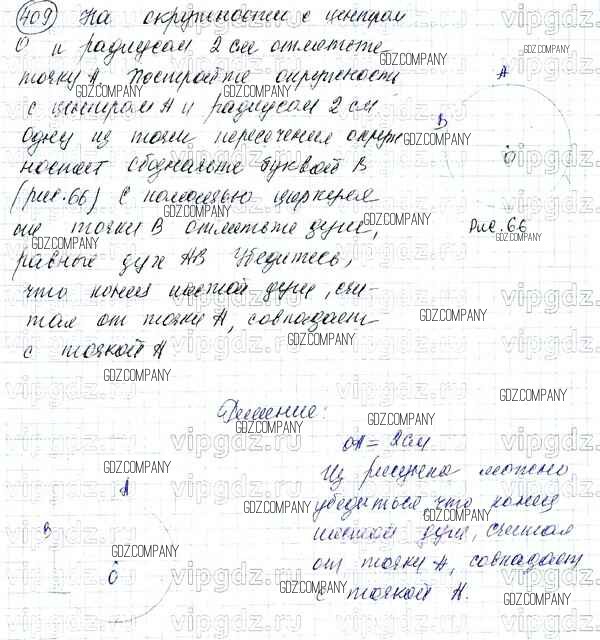 409) На окружности с центром
О и радиусом 2 см отметьте
точку А. Постройте окружность
с центром А и радиусом 2 см
Одну из точек пересечения окруж
ностей обозначьте буквой В
(рис. 66) С помощью циркуля
от точки В отметьте дуги,
равные дуге АВ Убедитесь,
что конец шестой дуги, счи-
тая от точки А, совпадает
с точкой А
A
B
O
Рис. 66
Решение:
OA = 2см
Из рисунка можно
убедиться что конец
шестой дуги, считая
от точки А, совпадает
с точкой А.
A
B
O
GDZ.COMPANY
vipgdz.ru